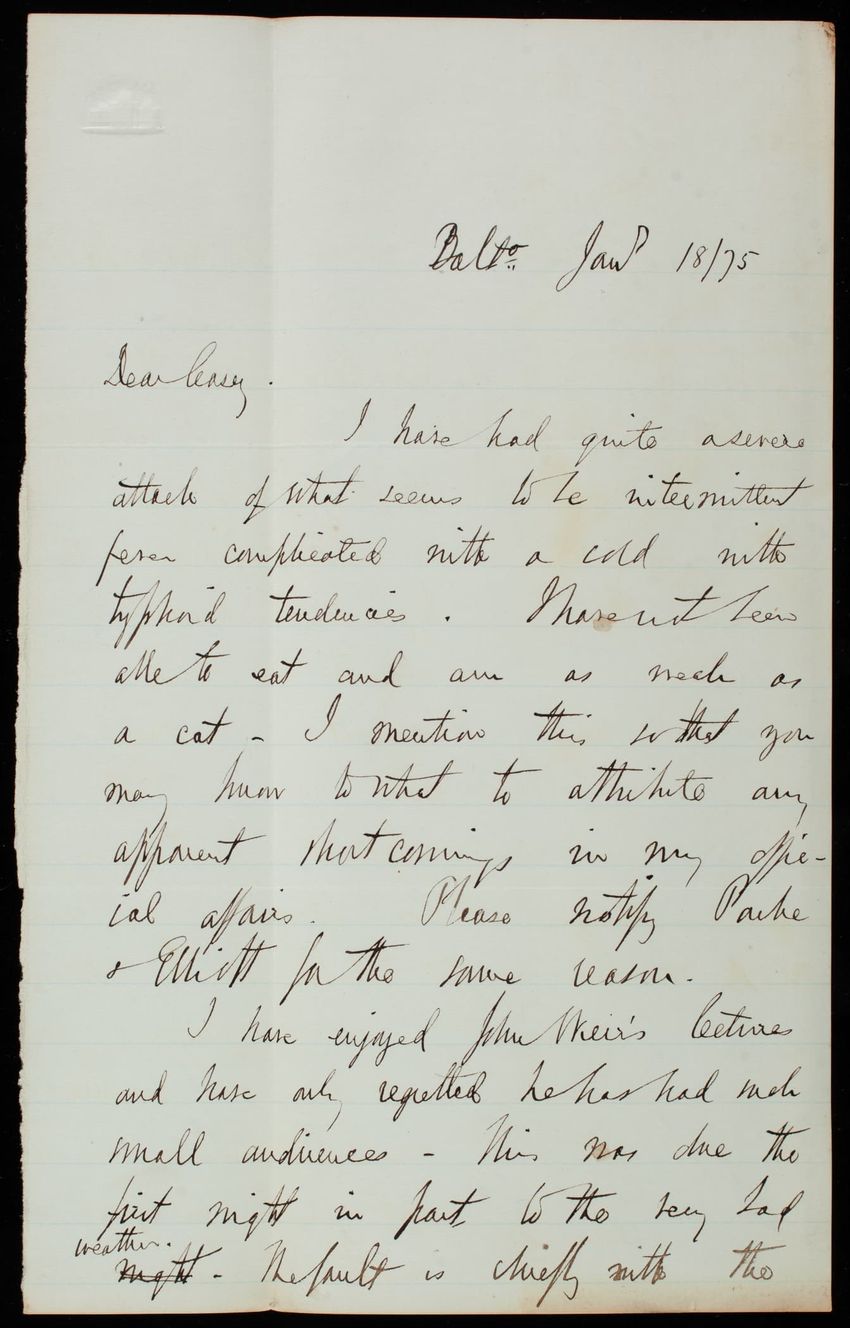 Balto. Jany 18/75
Dear Casey.
I have had quite a severe
attack of what seems to be intermittent
fever complicated with a cold with
typhoid tendencies. I have not been
able to eat and am as weak as
a cat - I mention this so that you
may know to what to attribute any
apparent short comings in my offi-
cial affairs. Please notify Parke
& Elliott for the same reason.
I have enjoyed John Weir's lectures
and have only regretted he has had such
small audiences - This was due the
first night in part to the very bad
weather.
night - The fault is chiefly with the